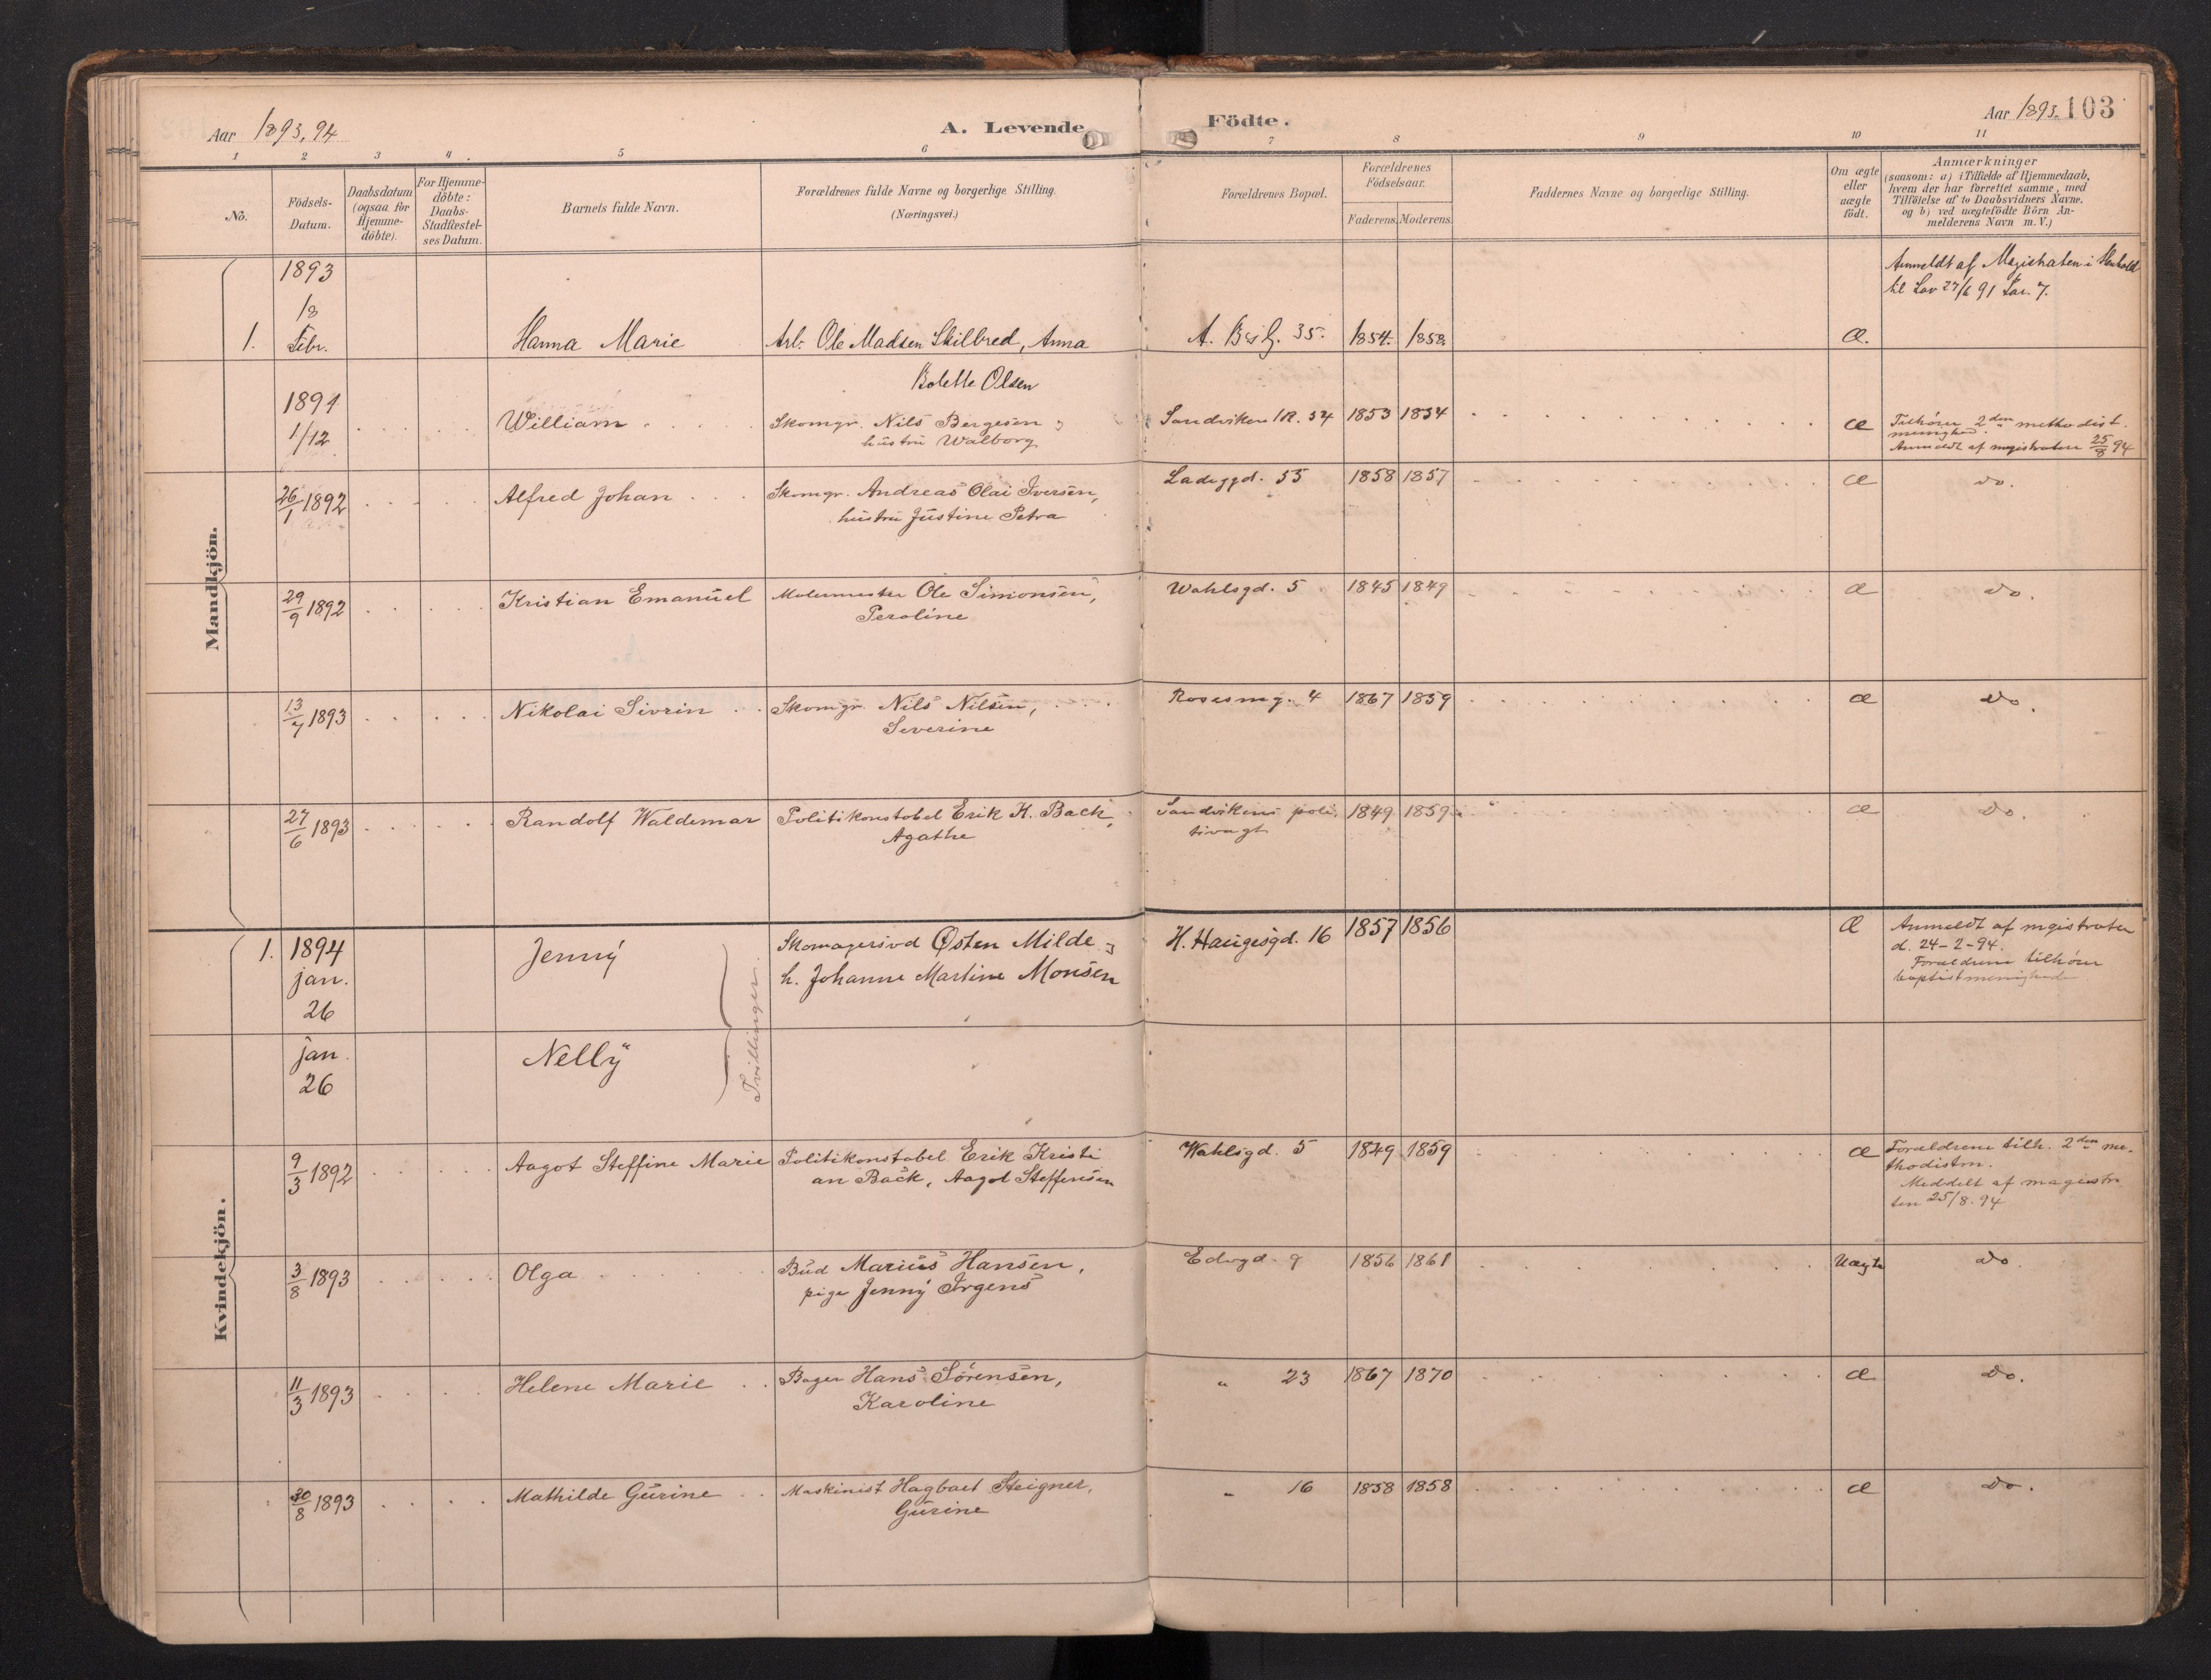 Aar 1893, 94
A. Levende
Födte.
Aar 1893. 103
1 2 3 4 5 6 7 8 9 10 11
No.
Födsels-
Datum.
Daabsdatum
(ogsaa for
Hjemme-
döbte).
For Hjemme-
döbte:
Daabs-
Stadfæstel-
ses Datum.
Barnets fulde Navn.
Forældrenes fulde Navne og borgerlige Stilling.
(Næringsvei.)
Forældrenes Bopæl.
Forældrenes
Födselsaar.
Faderens. Moderens.
Faddernes Navne og borgerlige Stilling.
Om ægte
eller
uægte
födt.
Anmærkninger
(saasom: a) i Tilfælde af Hjemmedaab,
hvem der har forrettet samme, med
Tilföielse af to Daabsvidners Navne.
og b) ved uægtefödte Börn An-
melderens Navn m. V.)
Mandkjön.
1893
18
1. Febr. Hanna Marie Arb. Ole Madsen Skilbred, Anna
Bolette Olsen
35. 1854. 1858. Æ.
Anmeldt af Magistraten i Henhold
til Lov 27/6 91 Par. 7.
1891
1/12 William Skomgr. Nils Bergesen og
hustru Walborg
Sandviken 1R. 54 1853 1854 Æ Tilhører 2den methodist.
menighed.
Anmeldt af magistraten 25/8 94
26/1 1892 Alfred Johan Skomgr. Andreas Olai Iversen,
hustru Justine Petra
Ladeggd. 55 1858 1857 Æ do.
29/9 1892 Kristian Emanuel Malermester Ole Simonsen,
Peroline
Wahlsgd. 5 1845 1849 Æ do.
13/7 1893 Nikolai Sivrin Skomgr. Nils Nilsen,
Severine
Rosesmg. 4 1867 1859 Æ do.
27/6 1893 Randolf Waldemar Politikonstabel Erik K. Back,
Agathe
Sandvikens poli-
tivagt 1849 1859 Æ do.
Kvindekjön.
1. 1894
jan.
26
Jenny
Skomagersvd Østen Milde og
h. Johanne Martine Monsen
H. Haugesgd. 16 1857 1856 Æ Anmeldt af mgistraten
d. 24-2-94.
Forældrene tilhører
baptistmenigheden
jan.
26
Nelly
Tvillinger.
9/3 1892 Aagot Steffine Marie Politikonstabel Erik Kristi
an Back, Aagot Steffensen
Wahlsgd. 5 1849 1859 Æ Forældrene tilh. 2den me-
thodistm.
Meddelt af magistra
ten 25/8. 94
3/8 1893 Olga Bud Marius Hansen,
pige Jenny Irgens
Edvgd. 9 1856 1861 Uægte do
11/3 1893 Helene Marie Bager Hans Sørensen,
Karoline
" 23 1867 1870 Æ do.
30/8 1893 Mathilde Gurine Maskinist Hagbart Steigner,
Gurine
" 16 1858 1858 Æ do.